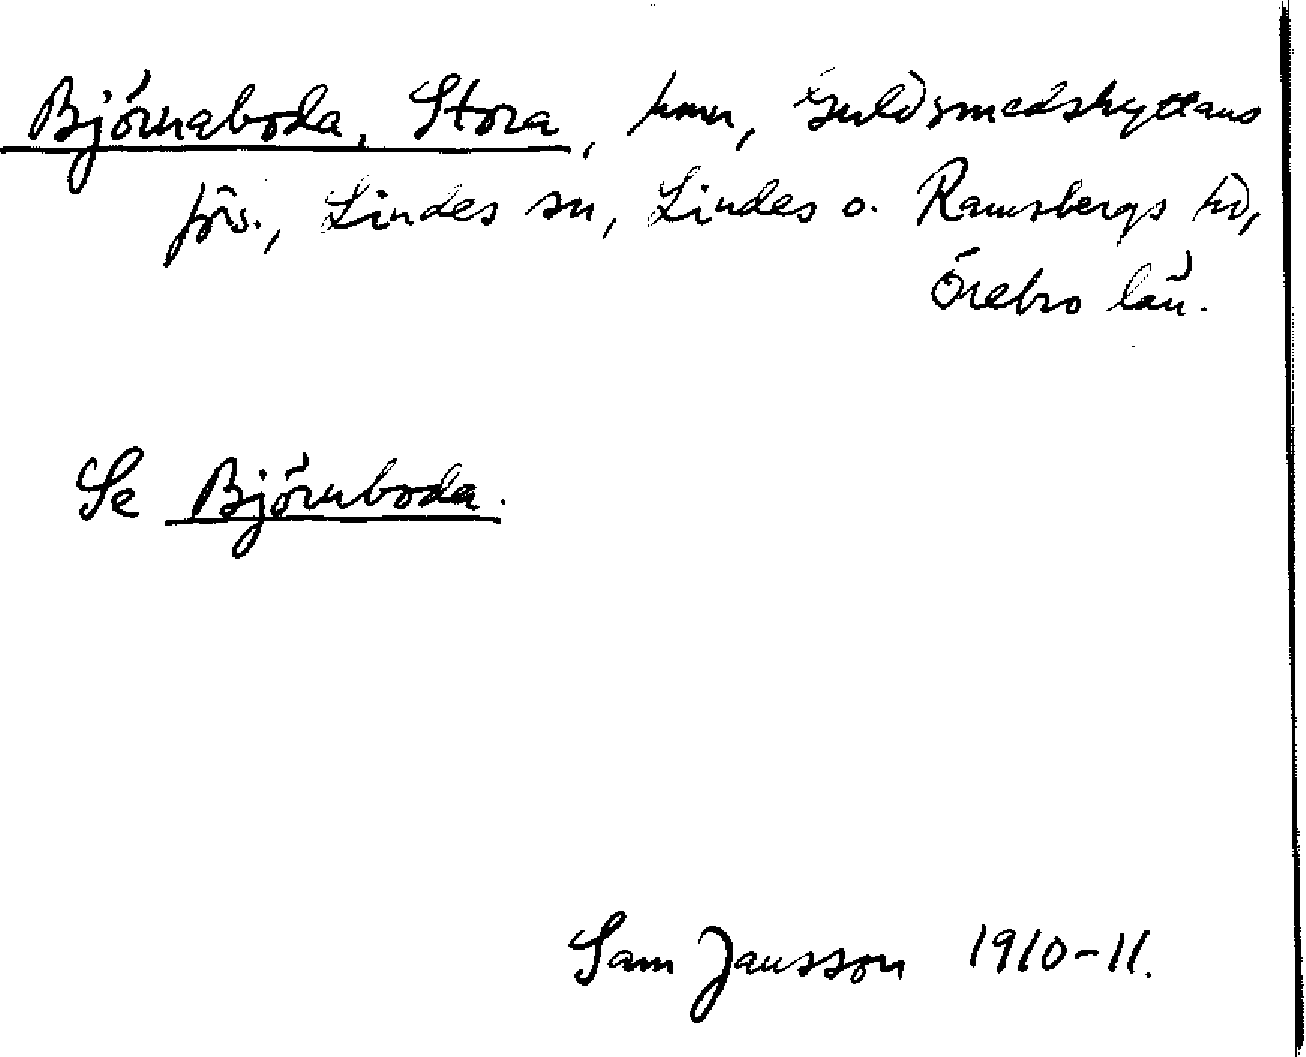 Björnaboda, Stora, hmn, Guldsmedshyttans
förs., Lindes sn, Lindes o. Ramsbergs hd,
Örebro län.
Se Björnboda.
Sam Jansson 1910-11.